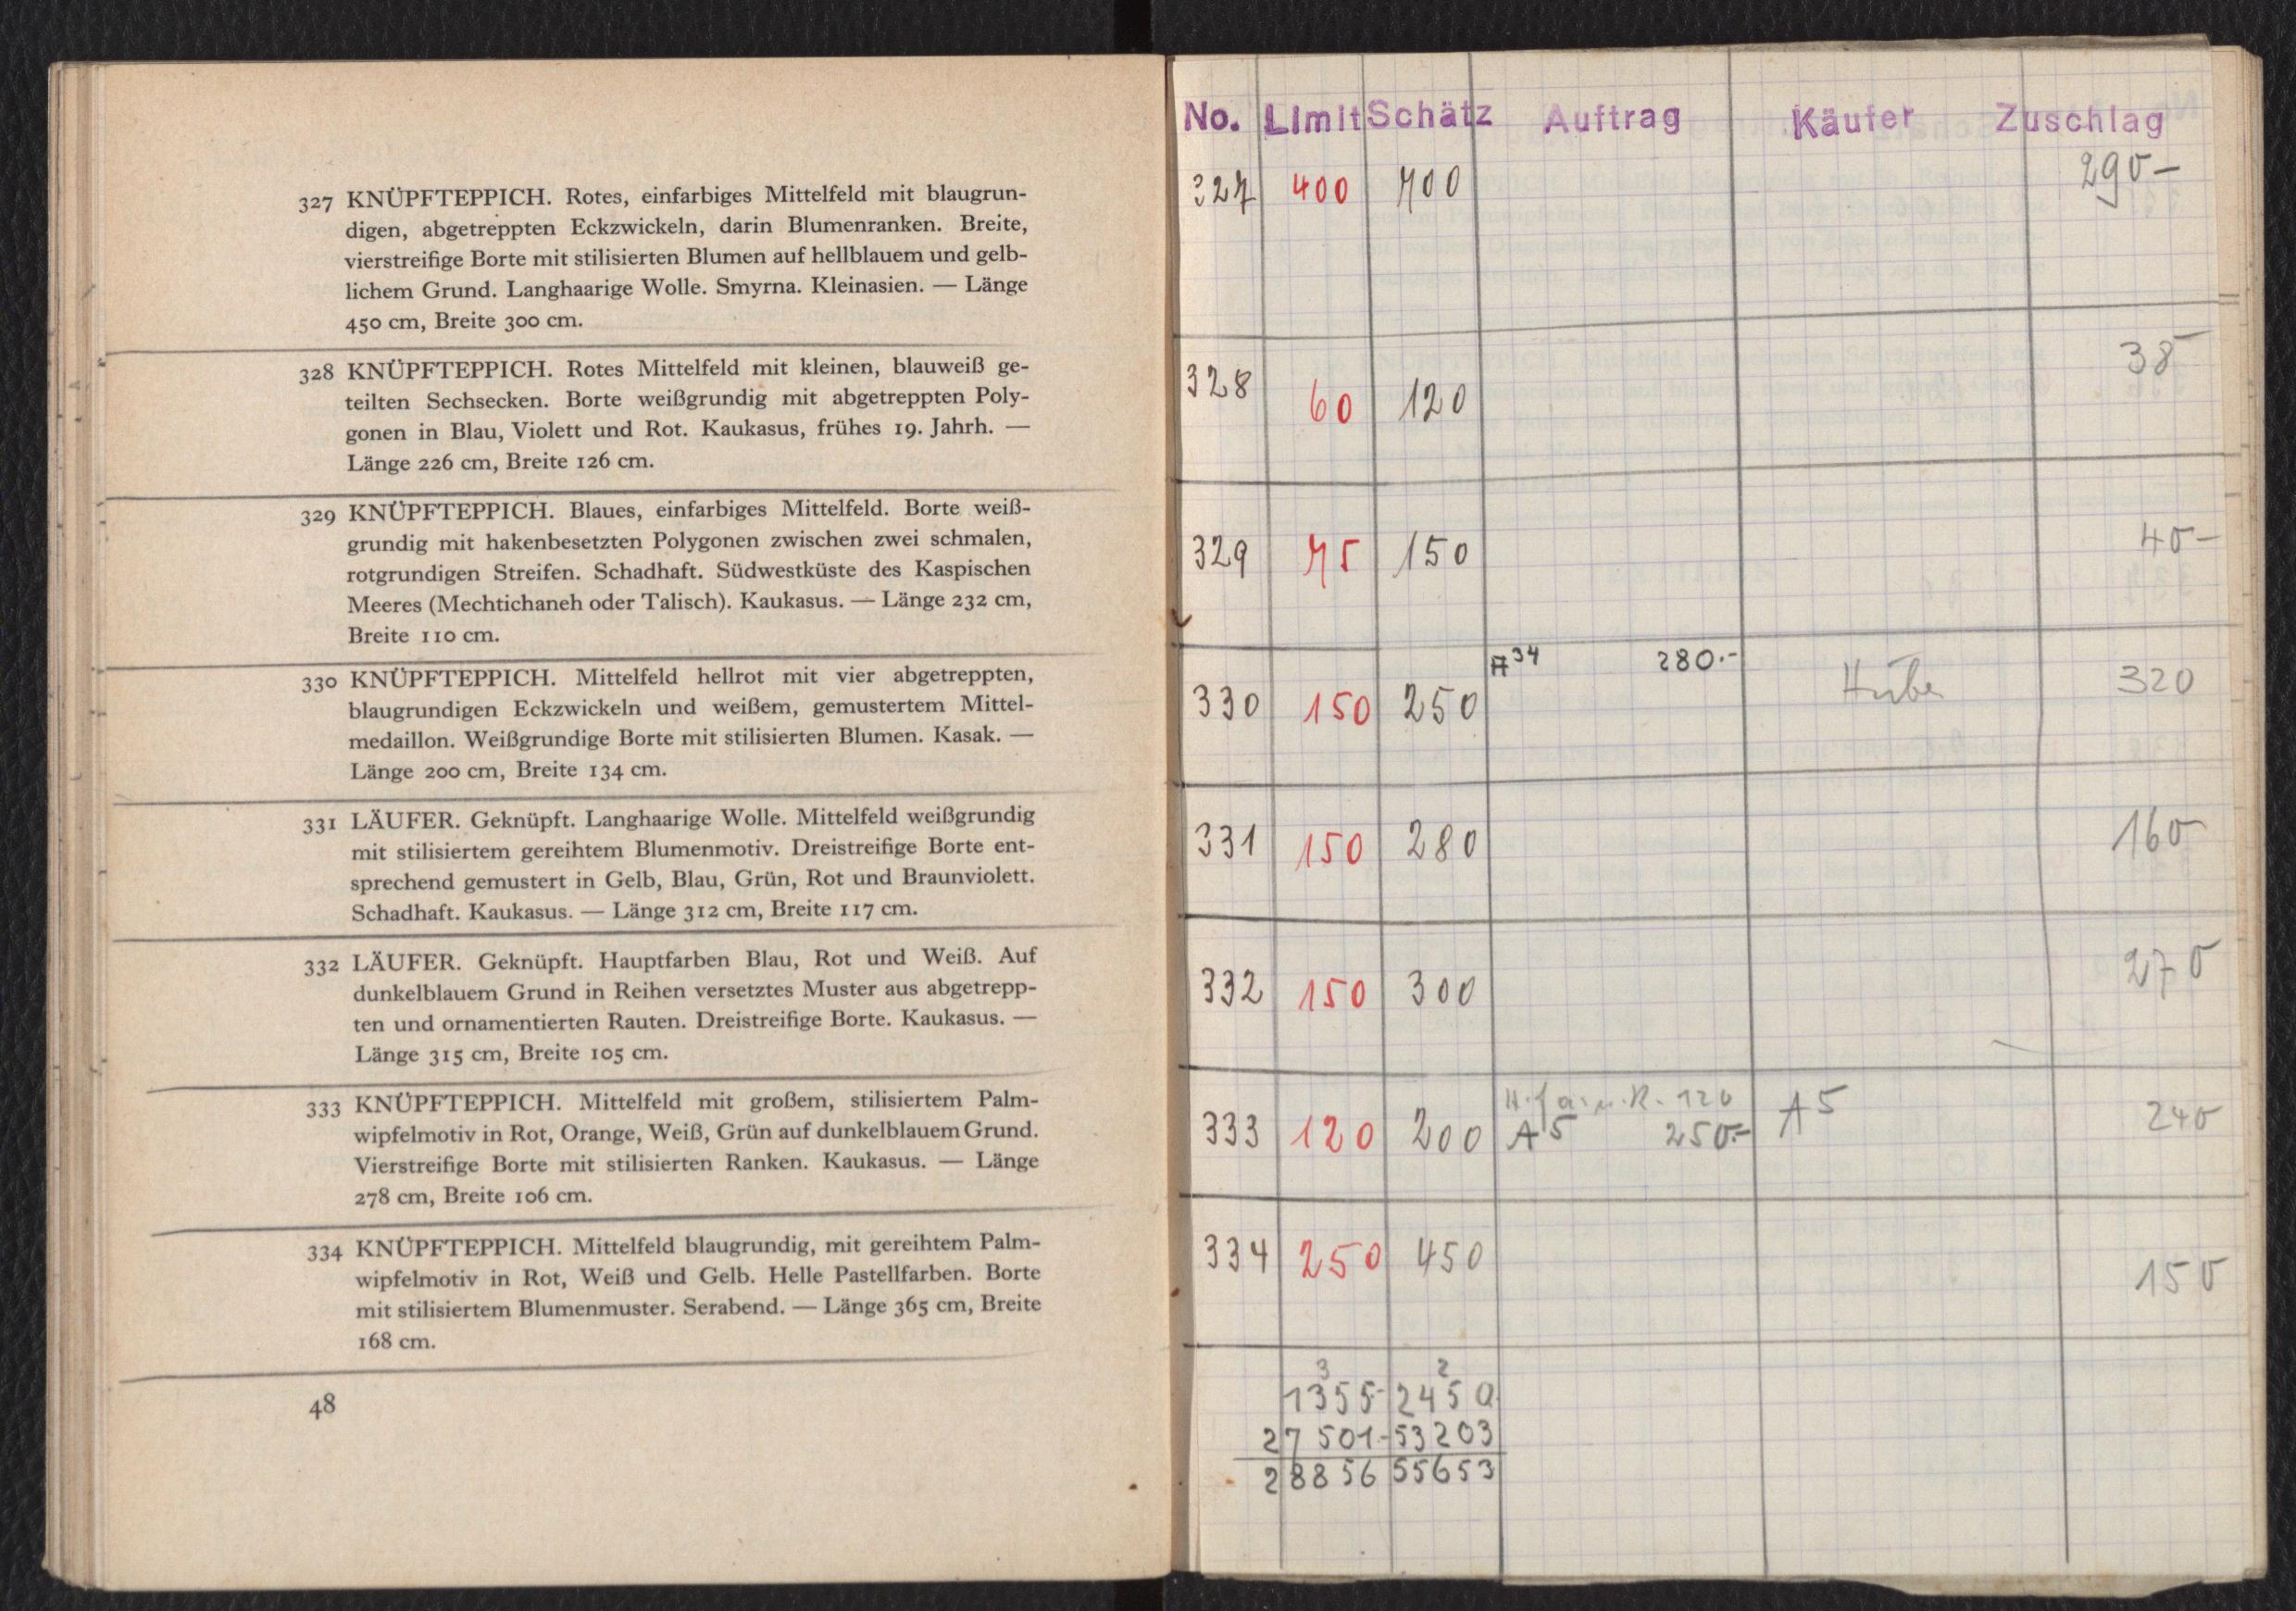 327 KNÜPFTEPPICH. Rotes, einfarbiges Mittelfeld mit blaugrun-
digen, abgetreppten Eckzwickeln, darin Blumenranken. Breite,
vierstreifige Borte mit stilisierten Blumen auf hellblauem und gelb-
lichem Grund. Langhaarige Wolle. Smyrna. Kleinasien. — Länge
450 cm, Breite 300 cm.
328 KNÜPFTEPPICH. Rotes Mittelfeld mit kleinen, blauweiß ge-
teilten Sechsecken. Borte weißgrundig mit abgetreppten Poly-
gonen in Blau, Violett und Rot. Kaukasus, frühes 19. Jahrh. —
Länge 226 cm, Breite 126 cm.
329 KNÜPFTEPPICH. Blaues, einfarbiges Mittelfeld. Borte weiß-
grundig mit hakenbesetzten Polygonen zwischen zwei schmalen,
rotgrundigen Streifen. Schadhaft. Südwestküste des Kaspischen
Meeres (Mechtichaneh oder Talisch). Kaukasus. — Länge 232 cm,
Breite 110 cm.
330 KNÜPFTEPPICH. Mittelfeld hellrot mit vier abgetreppten,
blaugrundigen Eckzwickeln und weißem, gemustertem Mittel-
medaillon. Weißgrundige Borte mit stilisierten Blumen. Kasak. —
Länge 200 cm, Breite 134 cm.
331 LÄUFER. Geknüpft. Langhaarige Wolle. Mittelfeld weißgrundig
mit stilisiertem gereihtem Blumenmotiv. Dreistreifige Borte ent-
sprechend gemustert in Gelb, Blau, Grün, Rot und Braunviolett.
Schadhaft. Kaukasus. — Länge 312 cm, Breite 117 cm.
332 LÄUFER. Geknüpft. Hauptfarben Blau, Rot und Weiß. Auf
dunkelblauem Grund in Reihen versetztes Muster aus abgetrepp-
ten und ornamentierten Rauten. Dreistreifige Borte. Kaukasus. —
Länge 315 cm, Breite 105 cm.
333 KNÜPFTEPPICH. Mittelfeld mit großem, stilisiertem Palm-
wipfelmotiv in Rot, Orange, Weiß, Grün auf dunkelblauem Grund.
Vierstreifige Borte mit stilisierten Ranken. Kaukasus. — Länge
278 cm, Breite 106 cm.
334 KNÜPFTEPPICH. Mittelfeld blaugrundig, mit gereihtem Palm-
wipfelmotiv in Rot, Weiß und Gelb. Helle Pastellfarben. Borte
mit stilisiertem Blumenmuster. Serabend. — Länge 365 cm, Breite
168 cm.
48
No. Limit Schätz Auftrag Käufer Zuschlag
327 400 700 290-
328 60 120 38
329 75 150 40-
330 150 250 A34 280.- 320
331 150 280 160
332 150 300 270
120
333 120 200 A5 250.- A5 240
334 250 450 150
3 2
1355- 2450
27501- 53203
28856 55653